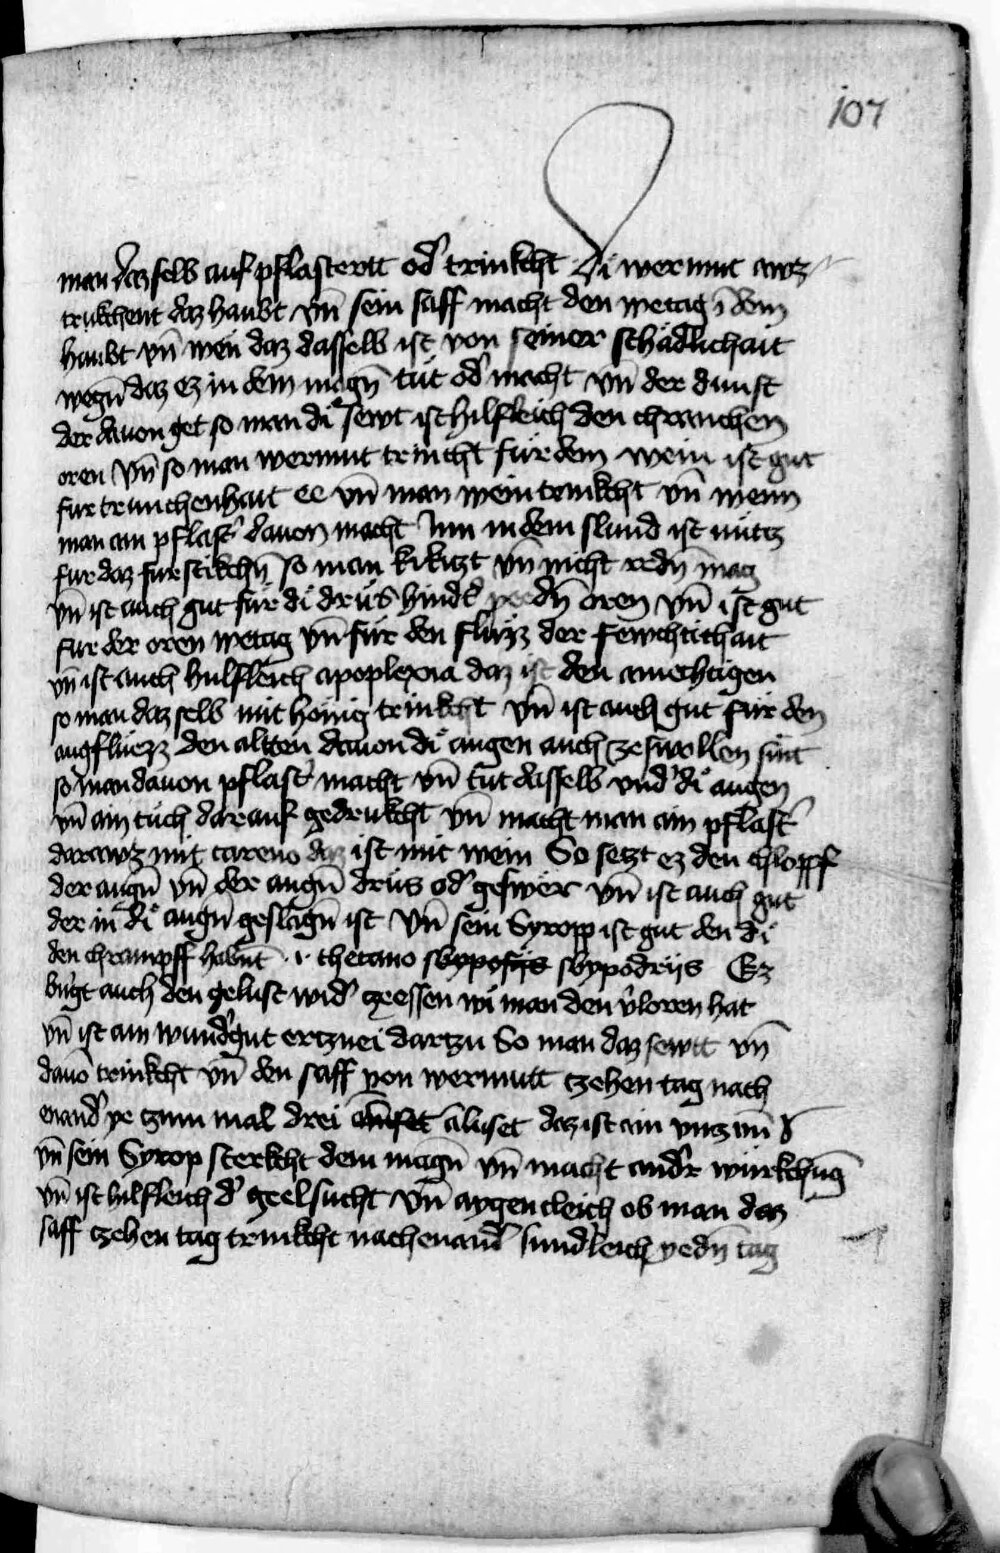 107
man daz selb auf pflastertt od' trinkcht Di wermut awz
trukchent daz haubt vn̄ sein saff macht den wetag ī dem
haubt vn̄ wen daz dasselb ist von seiner schädlichait
wegn̄ daz ez in dem magn̄ tüt od' macht vn̄ der dunst
der dauon get so man di sewt ist hilfleich den chranchen
oren vn̄ so man wermut trincht für dem wein ist gut
fur trunchenhait ee vn̄ man wein trinkcht vn̄ wenn
man ain pflast' dauon macht Inn in dem slund ist nütz
fur daz furstikchn̄ so man kikitzt vn̄ nicht redn̄ mag
vn̄ ist auch gut für di drüs hind' dn̄ oren vn̄ ist gut
fur der oren wetag vn̄ für den fluzz der fewchtichait
vn̄ ist auch hulfleich apoplexia daz ist den amechtigen
so man daz selb mit honig trinkcht vn̄ ist auch gut für den
augfluezz den altten dauon di augen auch zeswollen sint
so man dauon pflast' macht vn̄ tut dasselb vnd' di augen
vn̄ ain tuch darauf gedrukcht vn̄ macht man ain pflast'
darawz mit careno daz ist mit wein So setzt ez den chlopff
der augn̄ vn̄ der augn̄ drüs od' geswer vn̄ ist auch gut
der in di augn̄ geslagn̄ ist vn̄ sein Syropp ist gut den di
den chrampff habn̄t .i. thetano sbypodriis Ez
b'gt auch den gelust wid' zeessen wi man den v'loren hat
vn̄ ist ain wund' gut ertznei dartzu So man daz sewtt vn̄
dauō trinkcht vn̄ den saff von wermutt tzehen tag nach
enand' ye tzum mal drei āluset daz ist ain vntz mī
vn̄ sein Syrop sterkcht dem magn̄ vn̄ macht and'r würkchūg
vn̄ ist hilfleich d' geelsucht vn̄ aygentleich ob man daz
saff tzehen tag trinkcht nachenand' sund'leich yedn̄ tag